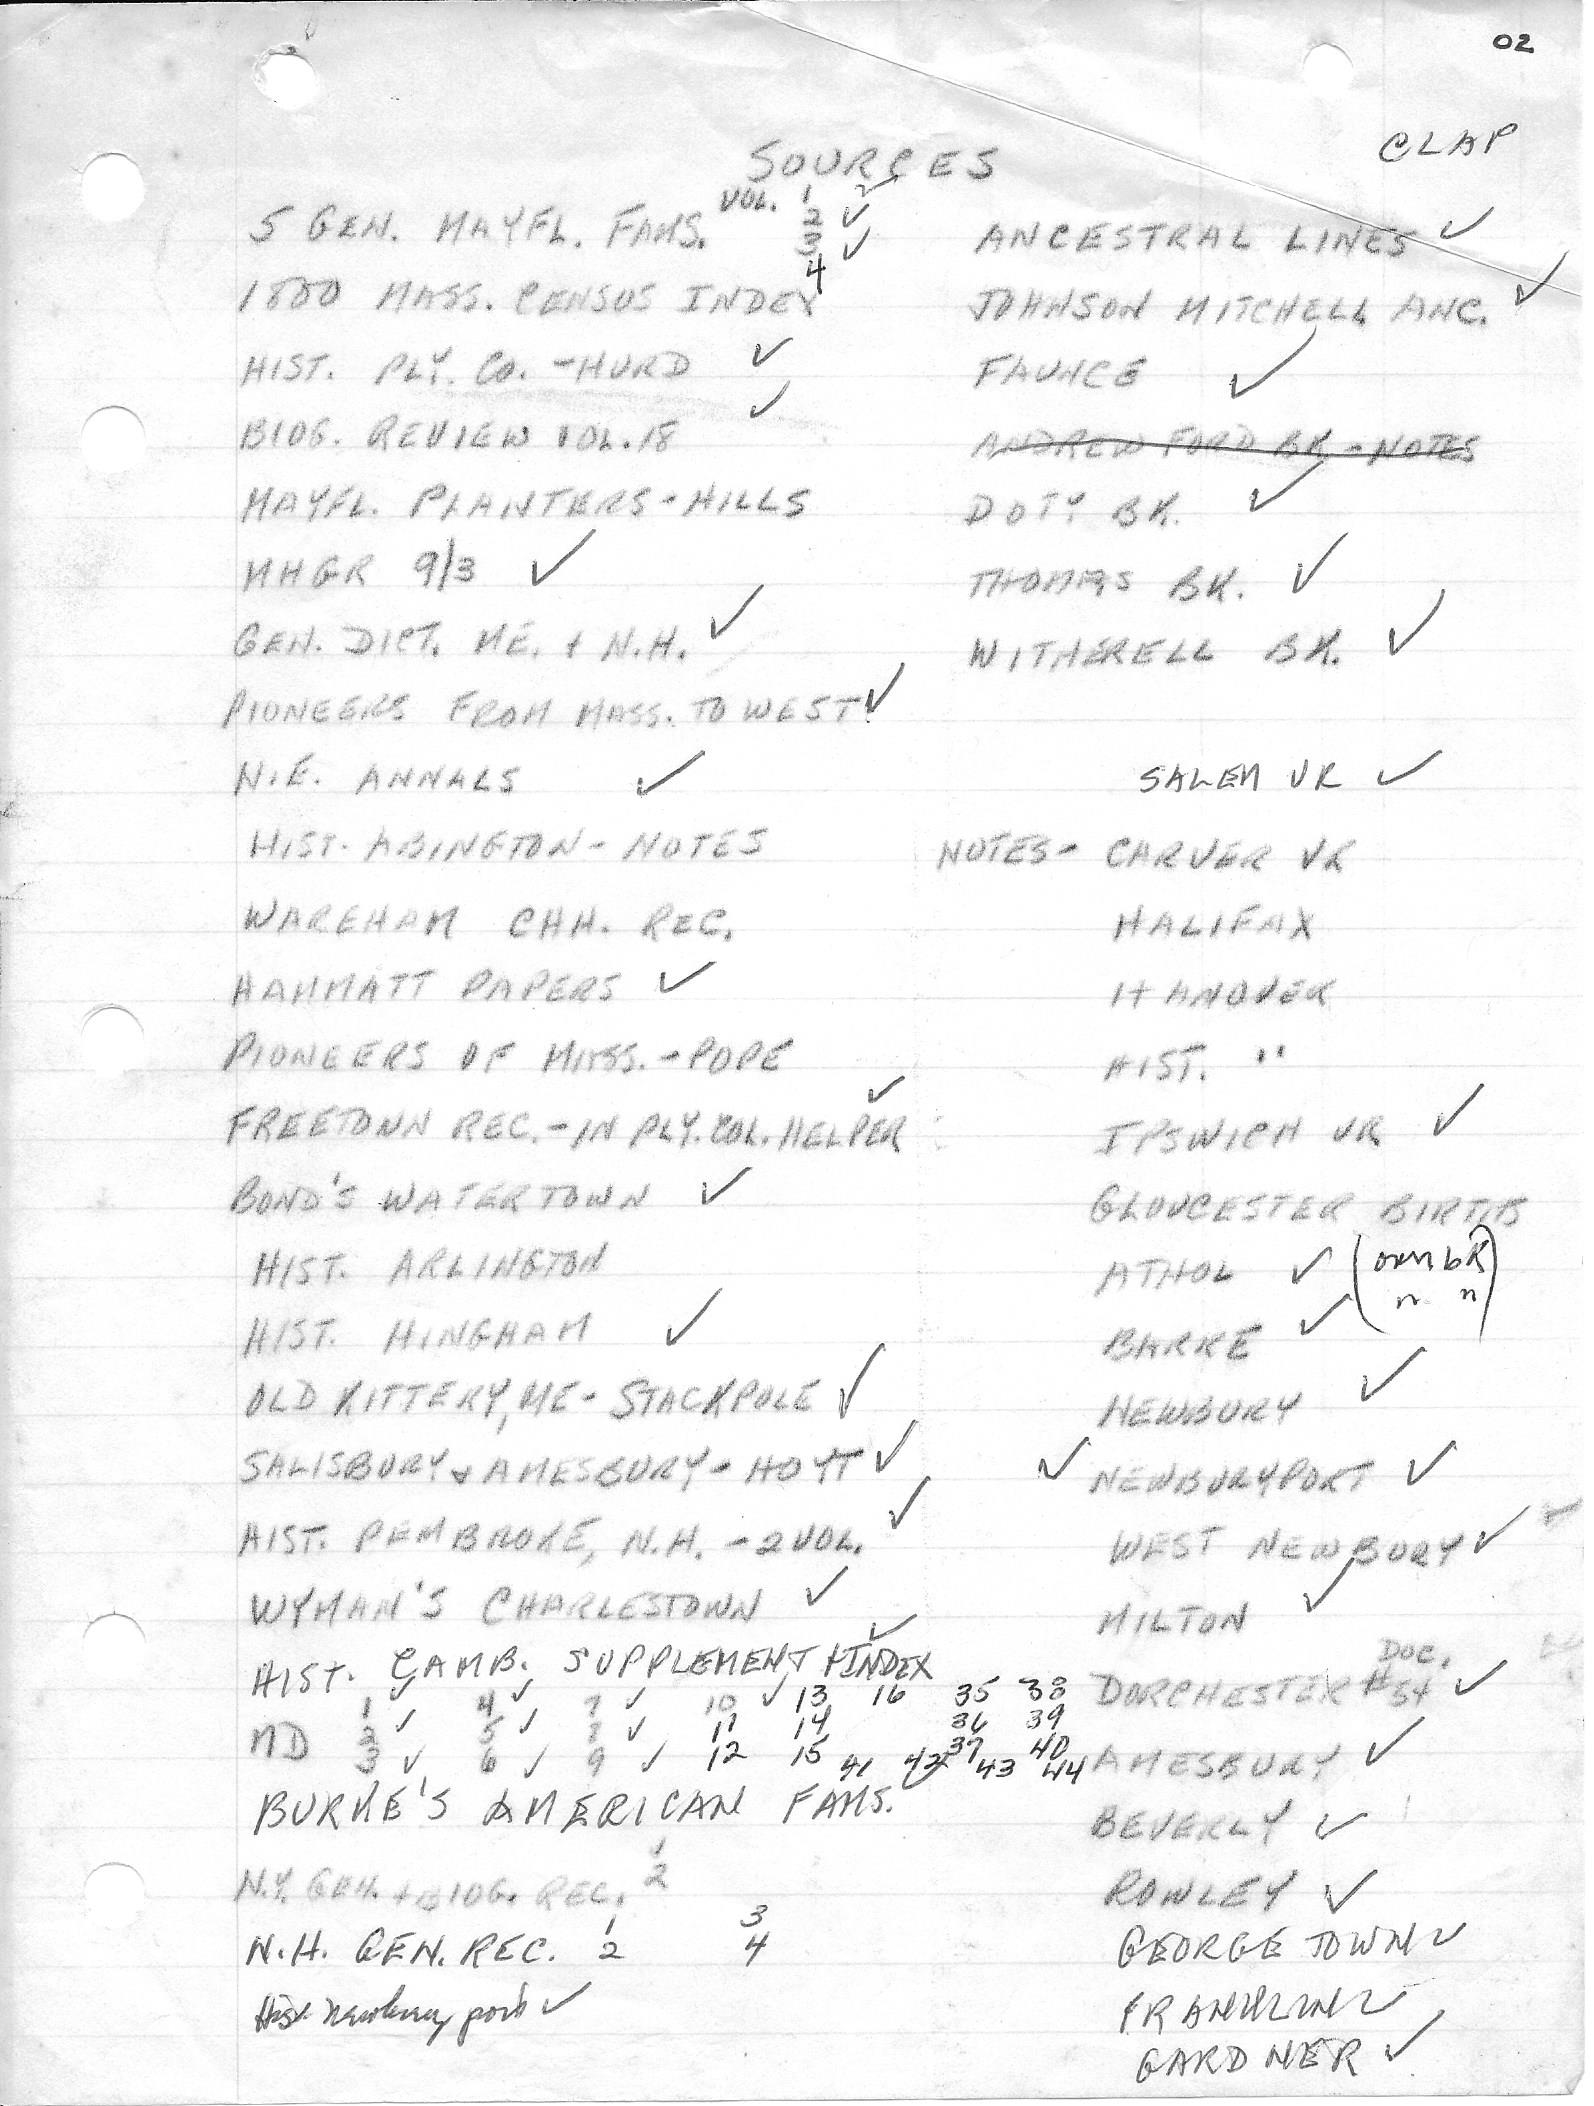 02
CLAP
SOURCES
5 GEN. MAYFL. FAMS. VOL. 1 ✓
2 ✓
3 ✓
4
1800 MASS. CENSUS INDEX
HIST. PLY. CO. - HURD ✓
BIOG. REVIEW VOL. 18 ✓
MAYFL. PLANTERS - HILLS
MHGR 9/3 ✓
GEN. DICT. ME. + N.H. ✓
PIONEERS FROM MASS. TO WEST ✓
N.E. ANNALS ✓
HIST. ABINGTON - NOTES
WAREHAM CHH. REC.
HAMMATT PAPERS ✓
PIONEERS OF MASS. - POPE
FREETOWN REC. - IN PLY. COL. HELPER ✓
BOND'S WATERTOWN ✓
HIST. ARLINGTON
HIST. HINGHAM ✓
OLD KITTERY, ME - STACKPOLE ✓
SALISBURY & AMESBURY - HOYT ✓
HIST. PEMBROKE, N.H. - 2 VOL. ✓
WYMAN'S CHARLESTOWN ✓
HIST. CAMB. SUPPLEMENT + INDEX ✓
1 ✓ 4 ✓ 7 ✓ 10 ✓ 13 16 35 38
MD 2 ✓ 5 ✓ 8 ✓ 11 14 36 39
3 ✓ 6 ✓ 9 ✓ 12 15 37 40
41 42 43 44
BURKE'S AMERICAN FAMS. ✓
N.Y. GEN. + BIOG. REC. 1
2
N.H. GEN. REC. 1 3
2 4
Hist Newburyport ✓
ANCESTRAL LINES ✓
JOHNSON MITCHELL ANC. ✓
FAUNCE ✓
ANDREW FORD BK - NOTES
DOTY BK. ✓
THOMAS BK. ✓
WITHERELL BK. ✓
SALEM VR ✓
NOTES - CARVER VR
HALIFAX
HANOVER
HIST. "
IPSWICH VR ✓
GLOUCESTER BIRTHS
ATHOL ✓ (own bk)
BARRE ✓ (" ")
NEWBURY ✓
✓ NEWBURYPORT ✓
WEST NEWBURY ✓
MILTON ✓
DORCHESTER DOC. #54 ✓
AMESBURY ✓
BEVERLY ✓
ROWLEY ✓
GEORGETOWN ✓
FRANKLIN ✓
GARDNER ✓